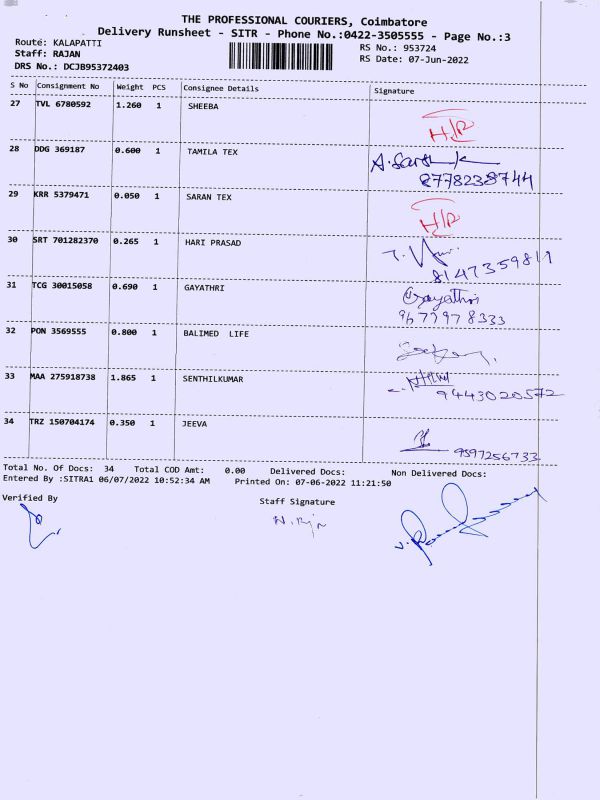 THE PROFESSIONAL COURIERS, Coimbatore
Delivery Runsheet - SITR - Phone No.:0422-3505555 - Page No.:3
Route: KALAPATTI
Staff: RAJAN
DRS No.: DCJB95372403
RS No.: 953724
RS Date: 07-Jun-2022
S No Consignment No Weight PCS Consignee Details Signature
27 TVL 6780592 1.260 1 SHEEBA H/R
28 DDG 369187 0.600 1 TAMILA TEX
8778238744
29 KRR 5379471 0.050 1 SARAN TEX H/R
30 SRT 701282370 0.265 1 HARI PRASAD
8147359811
31 TCG 30015058 0.690 1 GAYATHRI Gayathri
9677978333
32 PON 3569555 0.800 1 BALIMED LIFE
33 MAA 275918738 1.865 1 SENTHILKUMAR
9443020572
34 TRZ 150704174 0.350 1 JEEVA
9597256733
Total No. Of Docs: 34 Total COD Amt: 0.00 Delivered Docs: Non Delivered Docs:
Entered By :SITRA1 06/07/2022 10:52:34 AM Printed On: 07-06-2022 11:21:50
Verified By Staff Signature